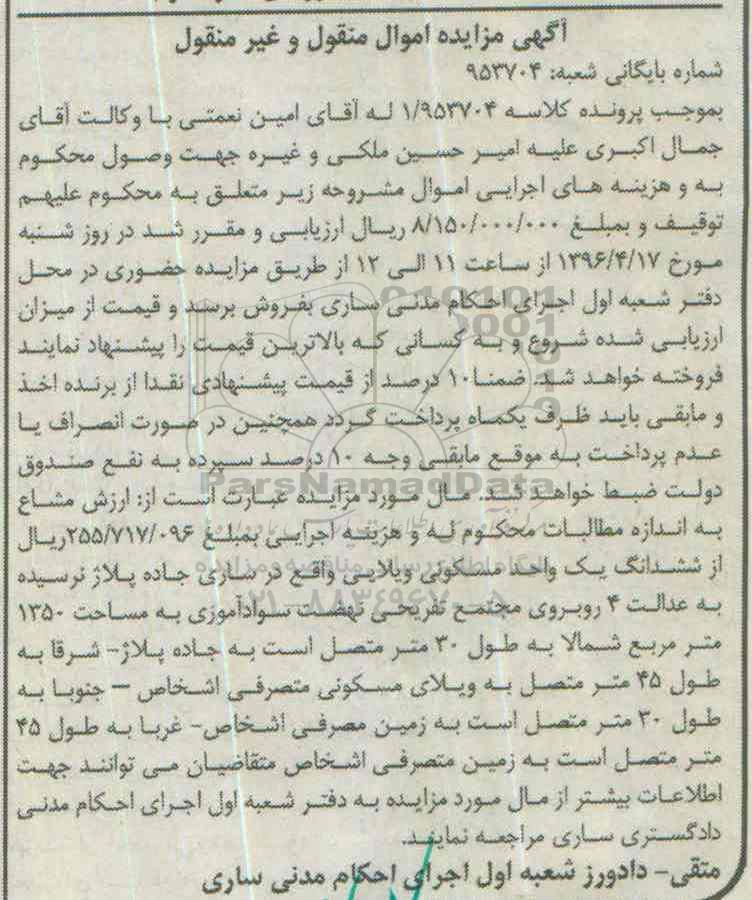 آگهی مزایده اموال منقول و غیر منقول
شماره بایگانی شعبه: ۹۵۳۷۰۴
بموجب پرونده کلاسه ۱/۹۵۳۷۰۴ له آقای امین نعمتی با وکالت آقای
جمال اکبری علیه امیر حسین ملکی و غیره جهت وصول محکوم
به و هزینه های اجرایی اموال مشروحه زیر متعلق به محکوم علیهم
توقیف و بمبلغ ۸/۱۵۰/۰۰۰/۰۰۰ ریال ارزیابی و مقرر شد در روز شنبه
مورخ ۱۳۹۶/۴/۱۷ از ساعت ۱۱ الی ۱۲ از طریق مزایده حضوری در محل
دفتر شعبه اول اجرای احکام مدنی ساری بفروش برسد و قیمت از میزان
ارزیابی شده شروع و به کسانی که بالاترین قیمت را پیشنهاد نمایند
فروخته خواهد شد. ضمنا۱۰ درصد از قیمت پیشنهادی نقدا از برنده اخذ
و مابقی باید ظرف یکماه پرداخت گردد همچنین در صورت انصراف یا
عدم پرداخت به موقع مابقی وجه ۱۰ درصد سپرده به نفع صندوق
ParsNamadData
دولت ضبط خواهد شد. مال مورد مزایده عبارت است از: ارزش مشاع
به اندازه مطالبات محکوم له و هزینه اجرایی بمبلغ ۲۵۵/۷۱۷/۰۹۶ریال
از ششدانگ یک واحد مسکونی ویلایی واقع در ساری جاده پلاژ نرسیده
به عدالت ۴ روبروی مجتمع تفریحی نهضت سوادآموزی به مساحت ۱۳۵۰
متر مربع شمالا به طول ۳۰ متر متصل است به جاده پلاژ- شرقا به
طول ۴۵ متر متصل به ویلای مسکونی متصرفی اشخاص – جنوبا به
طول ۳۰ متر متصل است به زمین مصرفی اشخاص- غربا به طول ۴۵
متر متصل است به زمین متصرفی اشخاص متقاضیان می توانند جهت
اطلاعات بیشتر از مال مورد مزایده به دفتر شعبه اول اجرای احکام مدنی
دادگستری ساری مراجعه نمایند.
متقی- دادورز شعبه اول اجرای احکام مدنی ساری